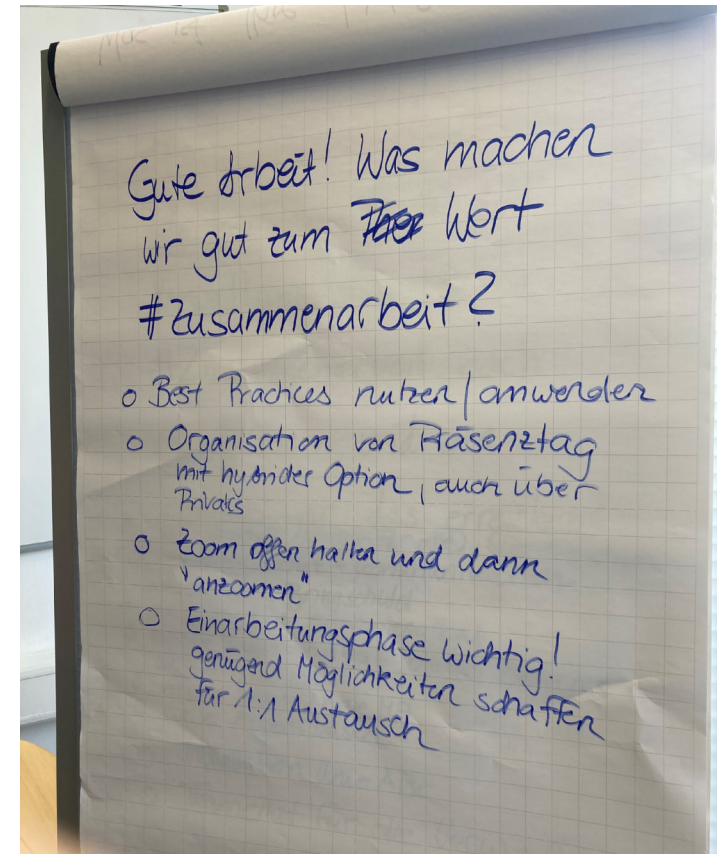 Gute Arbeit! Was machen
wir gut zum Wert
#Zusammenarbeit?
o Best Practices nutzen/anwenden
o Organisation von Präsenztag
mit hybrider Option, auch über
Privates
o Zoom offen halten und dann
"anzoomen"
o Einarbeitungsphase wichtig!
genügend Möglichkeiten schaffen
für 1:1 Austausch